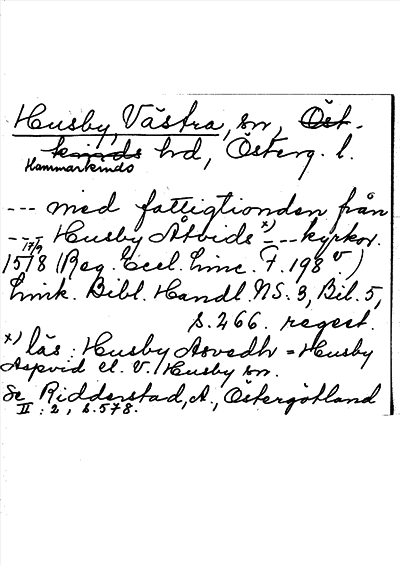 Husby, Västra, sn, Öst-
kinds hd, Österg. l.
Hammarkinds
--- med fattigtionden från
--- Husby Åtvids x) --- kyrkor.
17/9
1578 (Reg. Eccl. Linc. F. 198 v.)
Link. Bibl. Handl. NS. 3, Bil. 5,
s. 266. regest.
x) läs: Husby Asvedh = Husby
Aspvid el. V. Husby sn.
Se Ridderstad, A., Östergötland
II: 2, s. 578.